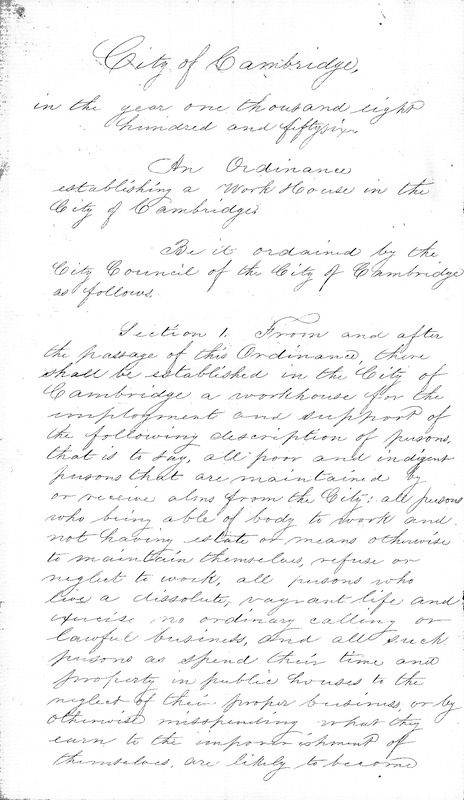 City of Cambridge,
in the year one thousand eight
hundred and fiftysix.
An Ordinance
establishing a Work House in the
City of Cambridge.
Be it ordained by the
City Council of the City of Cambridge
as follows.
Section 1. From and after
the passage of this Ordinance, there
shall be established in the City of
Cambridge a workhouse for the
employment and support of
the following description of persons,
that is to say, all poor and indigent
persons that are maintained by
or receive alms from the City; all persons
who being able of body to work and
not having estate or means otherwise
to maintain themselves, refuse or
neglect to work, all persons who
live a dissolute, vagrant life and
exercise no ordinary calling or
lawful business, and all such
persons as spend their time and
property in public houses to the
neglect of their proper business, or by
otherwise misspending what they
earn to the impoverishment of
themselves, are likely to become